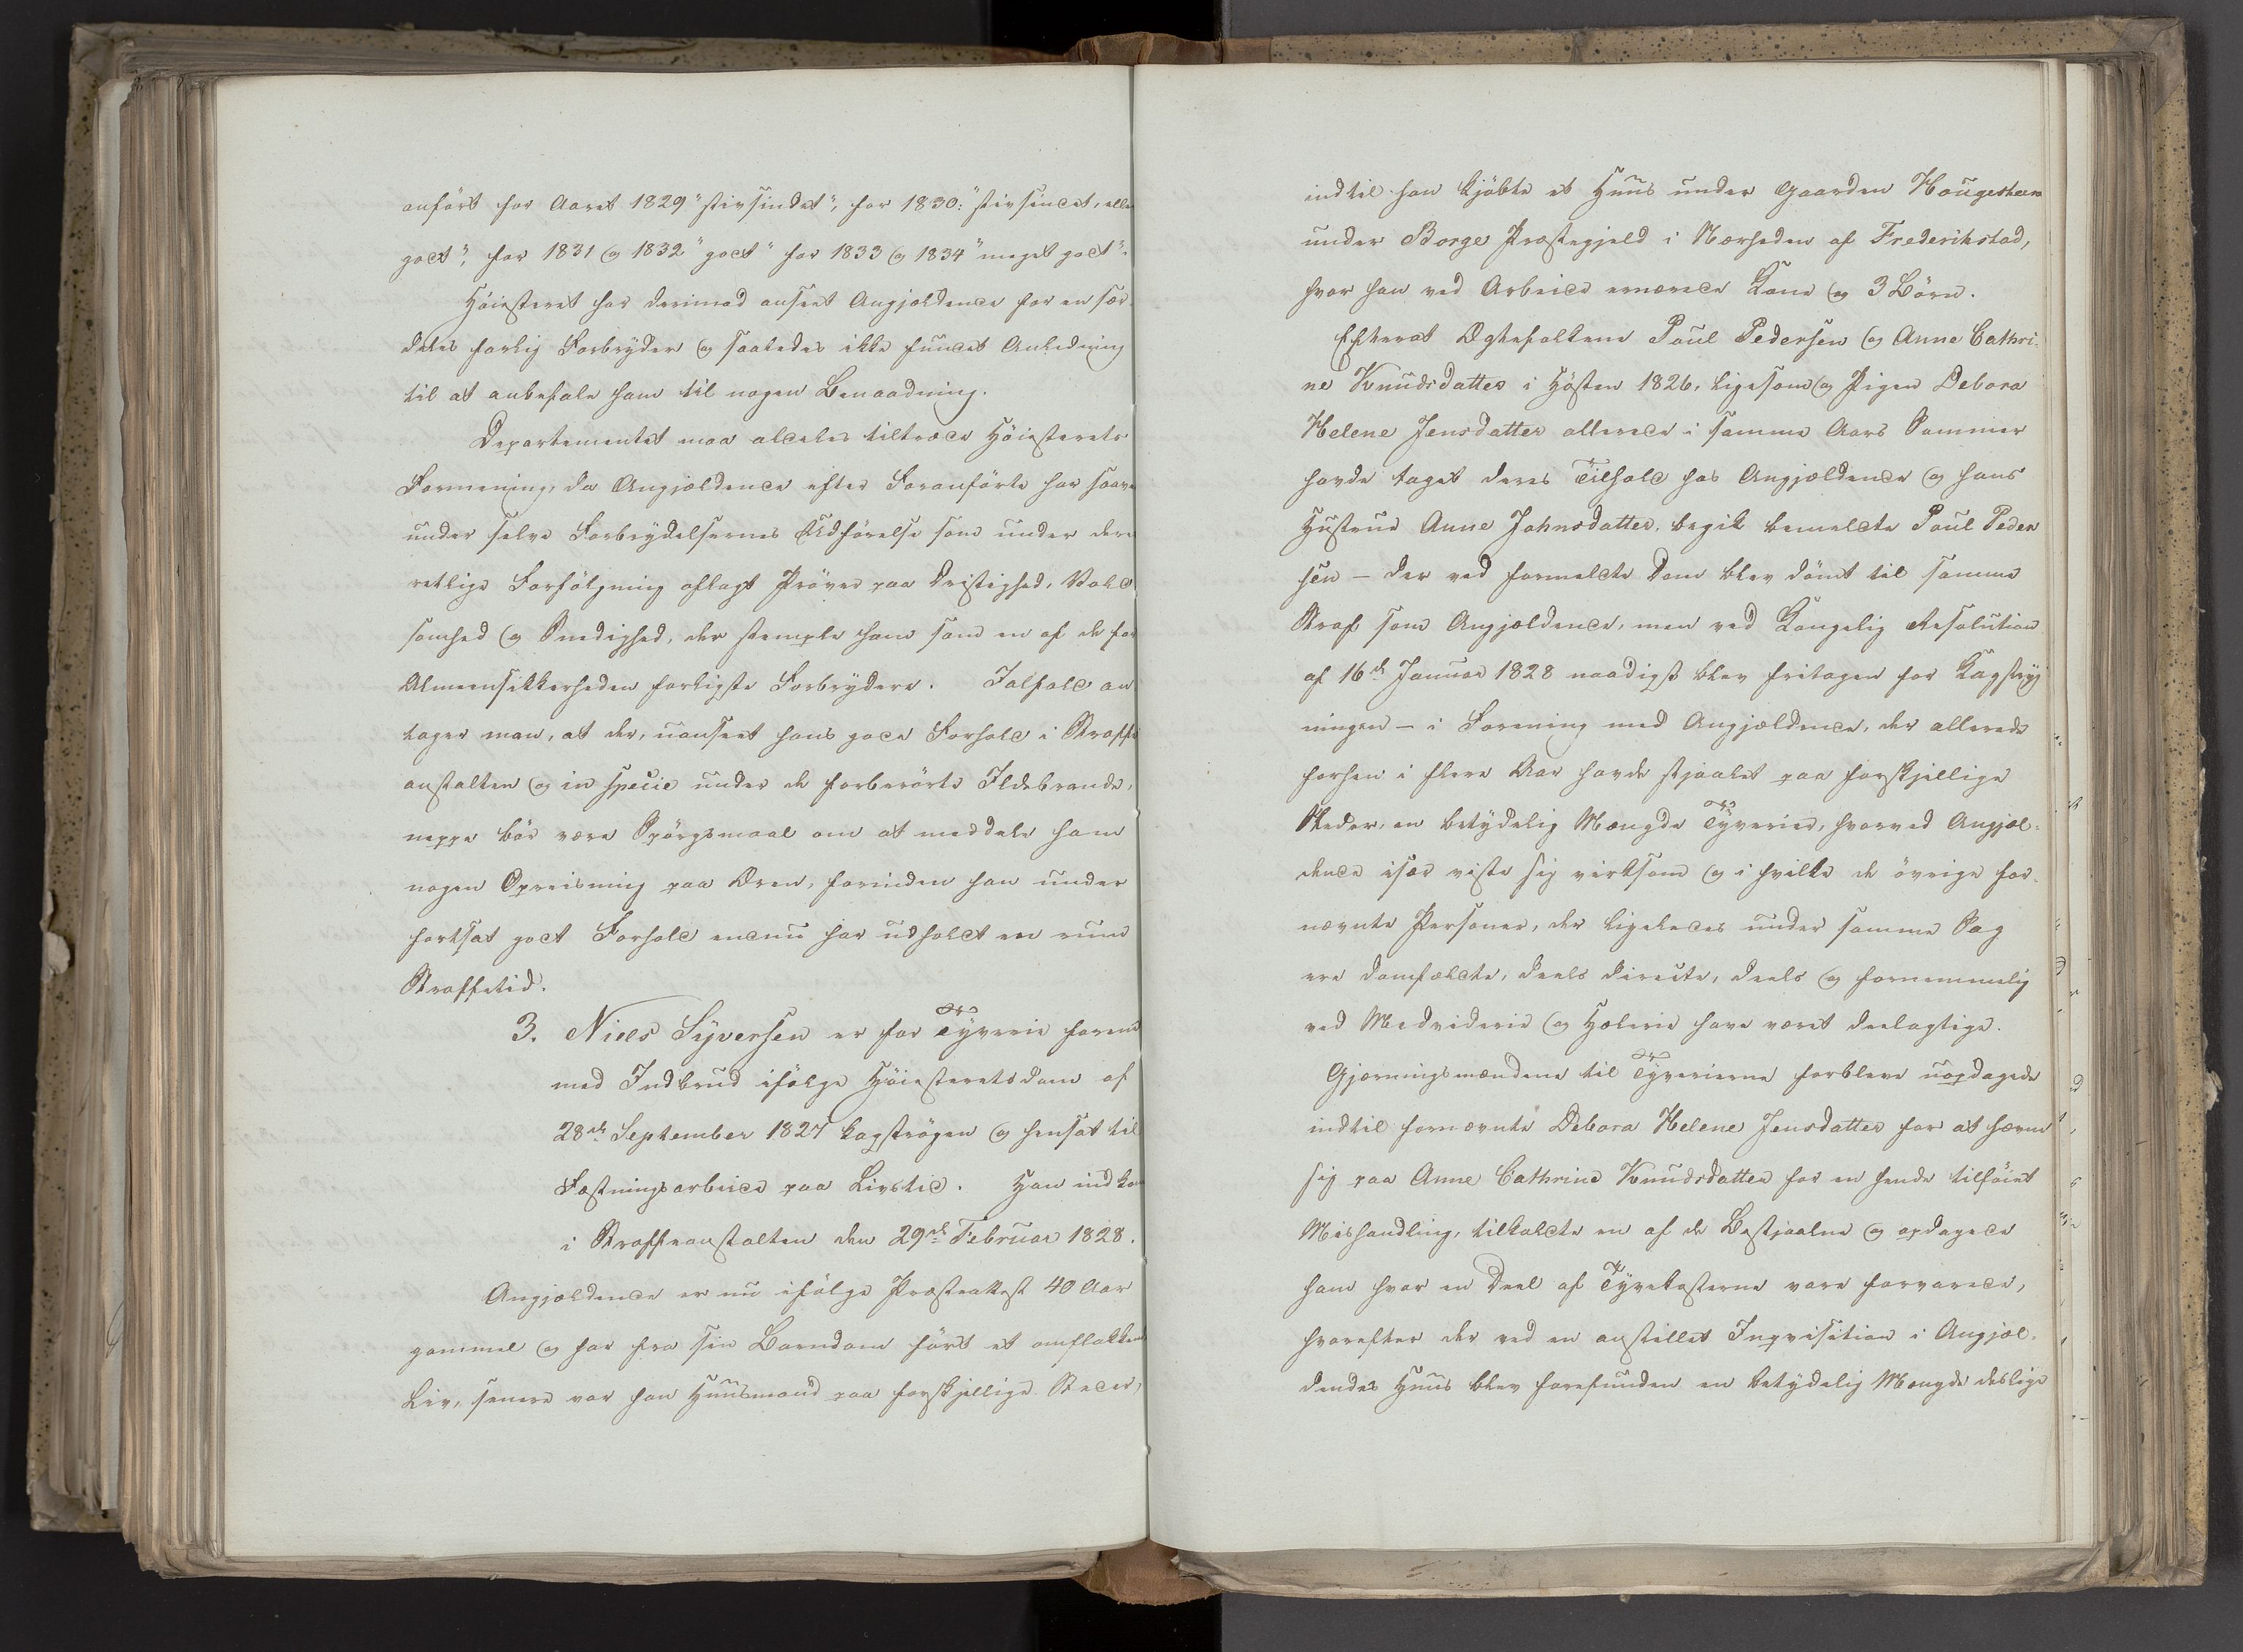 anført for Aaret 1829 "stivsindet", for 1830: "stivsindet, eller
godt", for 1831 og 1832 "godt" for 1833 og 1834 "meget godt".
Høiesteret har derimod anseet Angjældende for en sær
deles farlig Forbryder og saaledes ikke fundet Anledning
til at anbefale ham til nogen Benaadning.
Departementet maa aldeles tiltræde Høiesterets
Formening, da Angjældende efter Foranførte har saavel
under selve Forbrydelsernes Udførelse som under den
retlige Forfølgning aflagt Prøver paa Dristighed, Vold
somhed og Snedighed, der stemple ham som en af de for
Almeensikkerheden farligste Forbrydere. Ialfald an
tager man, at der, uanseet hans gode Forhold i Straffe
anstalten og in specie under de forberørte Ildebrande,
neppe bør være Spørgsmaal om at meddele ham
nogen Opreisning paa Æren, forinden han under
fortsat godt Forhold endnu har udholdt en rum
Straffetid.
3. Niels Syversen er for Tyverie forenet
med Indbrud ifølge Høiesteretsdom af
28de September 1827 kagstrøgen og hensat til
Fæstningsarbeide paa Livstid. Han indkom
i Straffeanstalten den 29de Februar 1828.
Angjældende er nu ifølge Præsteattest 40 Aar
gammel og har fra sin Barndom ført et omflakkende
Liv, senere var han Huusmand paa forskjellige Steder,
indtil han kjøbte et Huus under Gaarden Hougesteen
under Borge Præstegjeld i Nærheden af Frederikstad,
hvor han ved Arbeide ernærede Kone og 3 Børn.
Efterat Ægtefolkene Poul Pedersen og Anne Cathri-
ne Knudsdatter i Høsten 1826, ligesom og Pigen Debora
Helene Jensdatter allerede i samme Aars Sommer
havde taget deres Tilhold hos Angjældende og hans
Hustrue Anne Johnsdatter, begik bemeldte Poul Peder
sen - der ved formeldte Dom blev dømt til samme
Straf som Angjældende, men ved Kongelig Resolution
af 16de Januar 1828 naadigst blev fritagen for Kagstryg
ningen - i Forening med Angjældende, der allerede
forhen i flere Aar havde stjaalet paa forskjellige
Steder, en betydelig Mængde Tyverier, hvorved Angjæl-
dende især viste sig virksom og i hvilke de øvrige for-
nævnte Personer, der ligeledes under samme Sag
ere domfældte, deels directe, deels og fornemmelig
ved Medviderie og Hælerie have været deelagtige.
Gjærningsmændene til Tyverierne forbleve uopdagede
indtil fornævnte Debora Helene Jensdatter for at hævne
sig paa Anne Cathrine Knudsdatter for en hende tilføiet
Mishandling, tilkaldte en af de Bestjaalne og opdagede
ham hvor en Deel af Tyvekosterne vare forvarede,
hvorefter der ved en anstillet Inqvisition i Angjæl-
dendes Huus blev forefunden en betydelig Mængde deslige